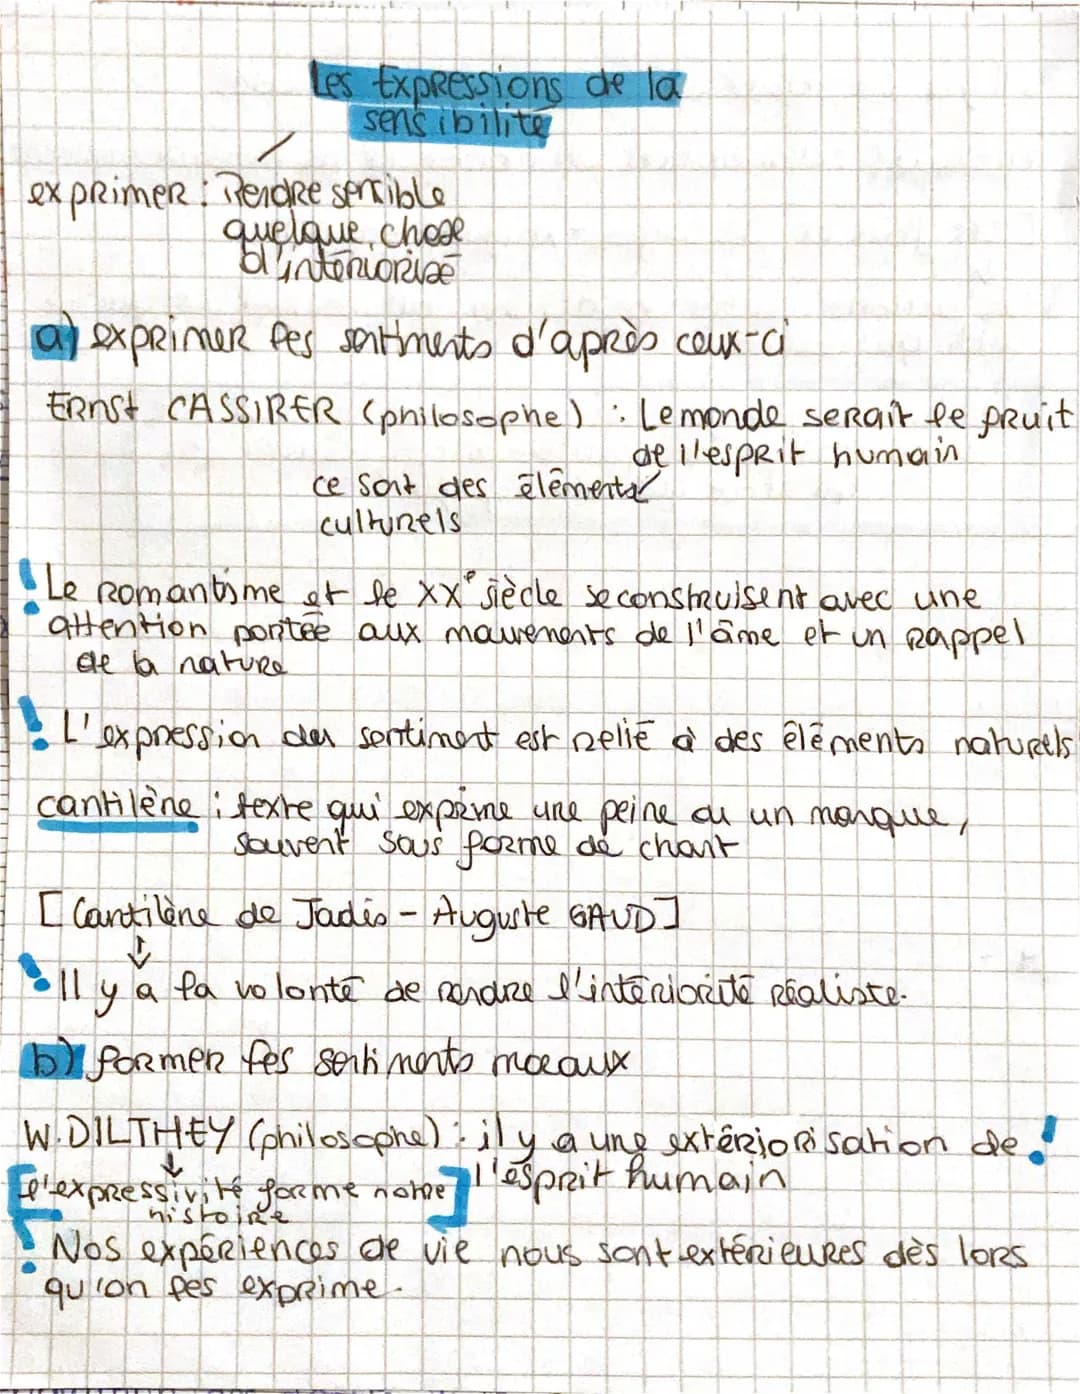 Les Expressions de la
sensibilité
exprimer : Rendre sensible
quelque chose
d'intériorisé
a) exprimer les sentiments d'après ceux-ci
Ernst CASSIRER (philosophe) : Le monde serait le fruit
de l'esprit humain
ce sont des éléments
culturels
! Le romantisme et le XXe siècle se construisent avec une
attention portée aux mouvements de l'âme et un rappel
de la nature
! L'expression du sentiment est relié à des éléments naturels
cantilène : texte qui exprime une peine ou un manque,
souvent sous forme de chant
[Cantilène de Jadis - Auguste GAUD]
! Il y a la volonté de rendre l'intériorité réaliste.
b) former les sentiments moraux
W. DILTHEY (philosophe) : il y a une extériorisation de !
l'esprit humain
[l'expressivité forme notre
histoire]
! Nos expériences de vie nous sont extérieures dès lors
qu'on les exprime.